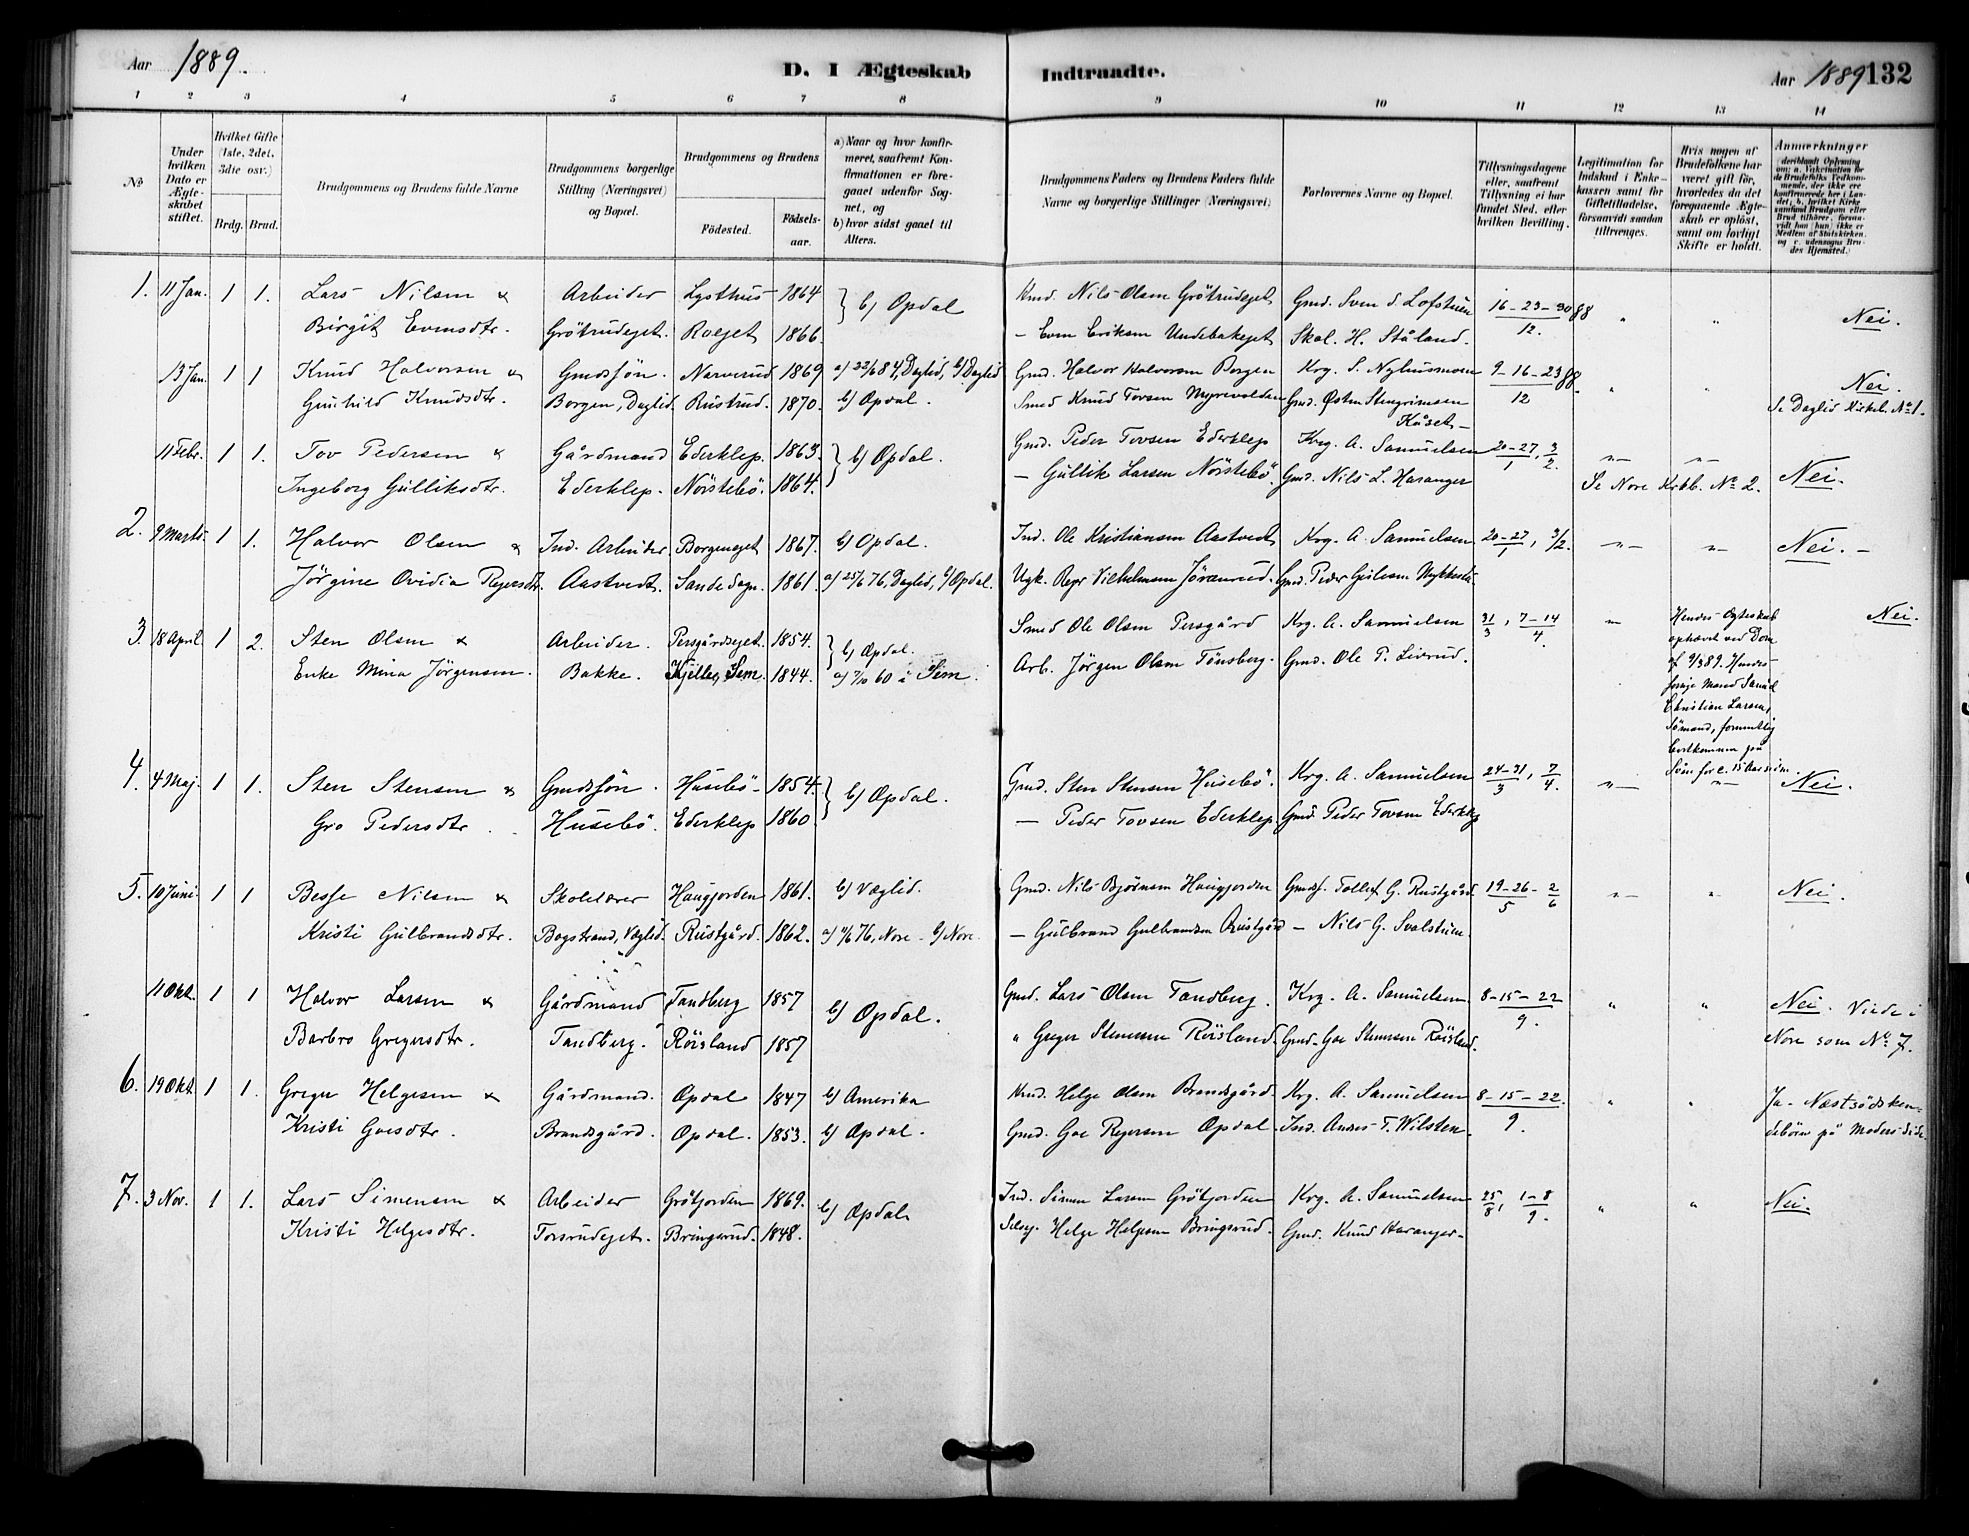 Aar 1889.
D. I Ægteskab Indtraadte.
Aar 1889 132
1 2 3 4 5 6 7 8 9 10 11 12 13 14
No
Under hvilken Dato er Ægteskabet stiftet.
Hvilket Gifte (1ste, 2det, 3die osv.)
Brdg. Brud.
Brudgommens og Brudens fulde Navne
Brudgommens borgerlige Stilling (Næringsvei) og Bopæl.
Brudgommens og Brudens
Födested.
Födselsaar.
a) Naar og hvor konfirmeret, saafremt Konfirmationen er foregaaet udenfor Sognet, og
b) hvor sidst gaaet til Alters.
Brudgommens Faders og Brudens Faders fulde Navne og borgerlige Stillinger (Næringsvei)
Forlovernes Navne og Bopæl.
Tillysningsdagene eller, saafremt Tillysning ei har fundet Sted, efter hvilken Bevilling.
Legitimation for Indskud i Enkekassen samt for Giftetilladelse, forsaavidt saadan tiltrænges.
Hvis nogen af Brudefolkene har været gift før, hvorledes da det foregaaende Ægteskab er opløst, samt om lovligt Skifte er holdt.
Anmærkninger
1. 11 Jan. 1 1. Lars Nilsen & Arbeider Lysthus 1864 } b) Opdal Nils Olsen Grötrudeget, Gmd. Sven S. Lofstuen 16-23-30 88 " " Nei.
Birgit Evensdtr. Grötrudeget. Roeget 1866. – Even Eriksen Undebakeget Skol. H. Ståland. 12.
13 Jan. 1 1 Knud Halvorsen & Gmdsøn. Narverud 1869 a) 22/6 84, Daglid, b) Daglid Gmd. Halvor Halvorsen Borgen Krg. S. Nyhusmoen 9-16-23 88. " " Nei.
Gunhild Knudsdtr. Borgen, Daglid. Rustrud. 1870. b) Opdal. Smed Knud Tovsen Myrevolden Gmd. Østen Stengrimsen 12 Se Daglid Kirkeb. No 1.
11 Febr. 1 1. Tov Pedersen & Gårdmand Ederklep. 1863. } b) Opdal. Gmd. Peder Tovsen Ederklep Krg. A. Samuelsen 20-27/1, 3/2. "– "–
Ingeborg Gulliksdtr. Ederklep. Nörstebö. 1864. – Gullik Larsen Nörstebö. Gmd. Nils L. Haranger Se Nore Krbb. No 2. Nei.
2. 9 Marts. 1 1. Halvor Olsen & Ind. Arbeider Borgeneget 1867. b) Opdal. Ind. Ole Kristiansen Aastvedt Krg. A. Samuelsen 20-27/1, 3/2. "– "– Nei. –
Jörgine Ovidia Rejersdtr. Aastvedt. Sande Sogn. 1861. a) 25/6 76, Daglid, b) Opdal. Ugk. Rejer Vilhelmsen Jöranrud. Gmd. Peder Gulsen
3. 18 April. 1 2. Sten Olsen & Arbeider. Persgårdseget. 1854. } b) Opdal. Smed Ole Olsen Persgård Krg. A. Samuelsen 31/3, 7-14/4. "– Hendes Ægteskab ophævet ved Dom af 9/3 89. Hendes forrige Mand Christian Larsen, Sömand, formentlig bortkommen på Söen for c. 15 Aar siden. Nei.
Enke Mina Jörgensen. Bakke. Kjelle, Sem. 1844. a) 7/10 60 i Sem. Arb. Jörgen Olsen Tönsberg. Gmd. Ole P. Liverud.
4. 4 Maj. 1 1. Sten Stensen & Gmdssön. Husebö 1854. } b) Opdal. Gmd. Sten Stensen Husebö. Krg. A. Samuelsen 24-31/3, 7/4. "– "– Nei.
Gro Pedersdtr. Husebö. Ederklep 1860. – Peder Tovsen Ederklep. Gmd. Peder Tovsen Ederklep
5. 10 Juni. 1 1 Besse Nilsen & Skolelærer Haugjorden 1861. b) Væglid. Gmd. Nils Bjørnsen Haugjorden Gmds. Tollef G. Rustgård. 19-26/5 - 2/6 "– " Nei.
Kristi Gulbrandsdtr. Bogstrand, Væglid. Rustgård. 1862. a) 11/6 76, Nore – b) Nore. – Gulbrand Gulbrandsen Rustgård – Nils G. Svalstuen.
11 Okt. 1 1 Halvor Larsen & Gårdmand Tandberg 1857 b) Opdal. Gmd. Lars Olsen Tandberg. Krg. A. Samuelsen 8-15-22/9. " " Nei. Viede i
Barbro Gregersdtr. Tandberg. Röisland 1857 " Greger Stensen Röisland. Gmd. Goe Stensen Röisland. Nore som No 7.
6. 19 Okt. 1 1. Greger Helgesen & Gårdmand. Opdal 1847 b) Amerika Helge Olsen Brandsgård. Krg. A. Samuelsen 8-15-22. " " Ja – Næstsödskendebörn på Moders Side.
Kristi Goesdtr. Brandsgård. Opdal. 1853. b) Opdal. Gmd. Goe Rejersen Opdal. Ind. Anders T. Wilsten. 9.
7. 3 Nov. 1 1. Lars Simensen & Arbeider Grötjorden 1869. b) Opdal. Ind. Simen Larsen Grötjorden Krg. A. Samuelsen 25/8, 1-8/9. " " Nei.
Kristi Helgesdtr. Torsrudeget. Bringsrud. 1848. Helge Helgesen Bringsrud. Gmd. Knud Haranger.